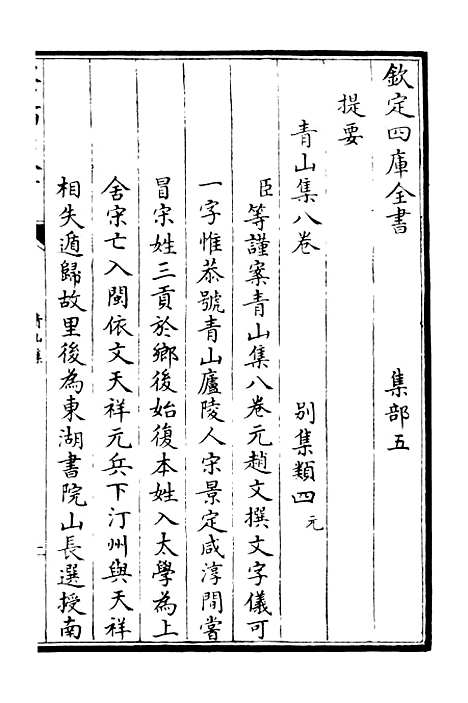 欽定四庫全書　集部五
提要
青山集八卷　別集類四元
臣等謹案青山集八卷元趙文撰文字儀可
一字惟恭號青山廬陵人宋景定咸淳間嘗
冒宋姓三貢於鄉後始復本姓入太學為上
舍宋亡入閩依文天祥元兵下汀州與天祥
相失遁歸故里後為東湖書院山長選授南
青山集